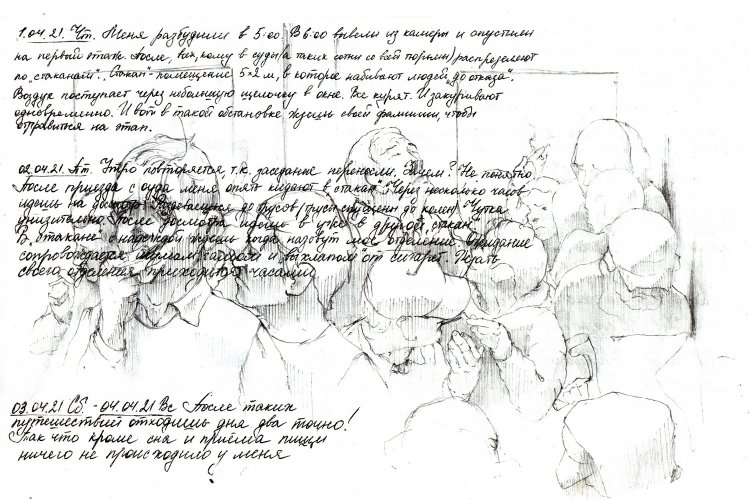 1.04.21. Чт. Меня разбудили в 5:00. В 6:00 вывели из камеры и опустили
на первый этаж. После, всех, кому в суды (а таких сотни со всей тюрьмы) распределяют
по „стаканам“. „Стакан“ - помещение 5×2 м, в которое набивают людей „до отказа“.
Воздух поступает через небольшую щелочку в окне. Все курят. И закуривают
одновременно. И вот в такой обстановке ждешь своей фамилии чтобы
отправиться на этап.
02.04.21. Пт. Утро повторяется т.к. заседание перенесли. Зачем? Не понятно
После приезда с суда меня опять кидают в „стакан“. Через несколько часов
идешь на досмотр. Раздеваешься до трусов (трусы спущены до колен). Жутко
унизительно. После досмотра идешь в уже в другой „стакан“
В „стакане“ с надеждой ждешь когда назовут мое отделение. Ожидание
сопровождается и от сигарет. Ждать
своего отделения приходится часами
03.04.21 Сб. - 04.04.21 Вс После таких
путешествий отходишь дня два точно!
Так что кроме сна и приёма пищи
ничего не происходило у меня